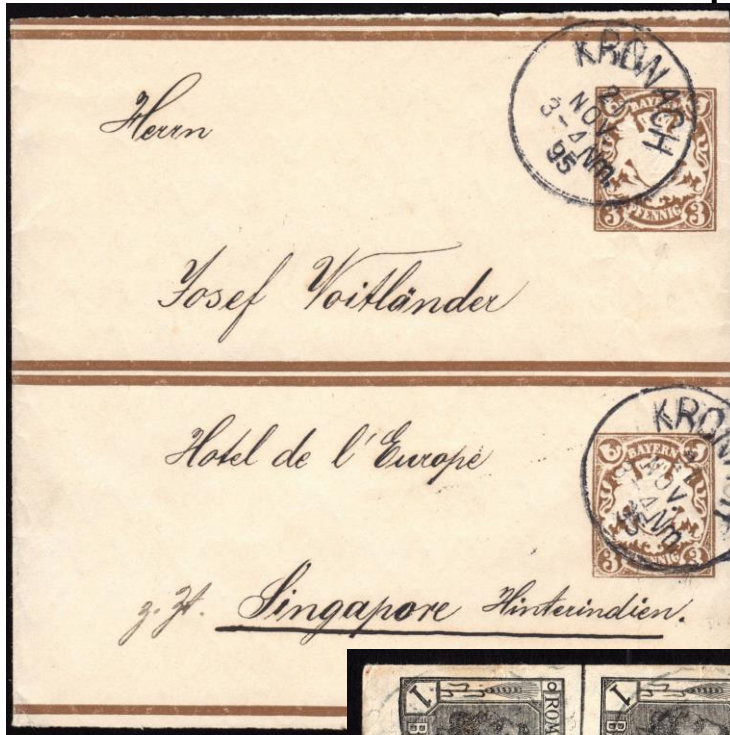 KRONACH
29
NOV
3-4 Nm.
95
BAYERN
3 PFENNIG 3
Herrn
Josef Voitländer
KRONACH
NOV
4 Nm.
95
BAYERN
3 PFENNIG 3
Hotel de l'Europe
z. Zt. Singapore Hinterindien.
1
1